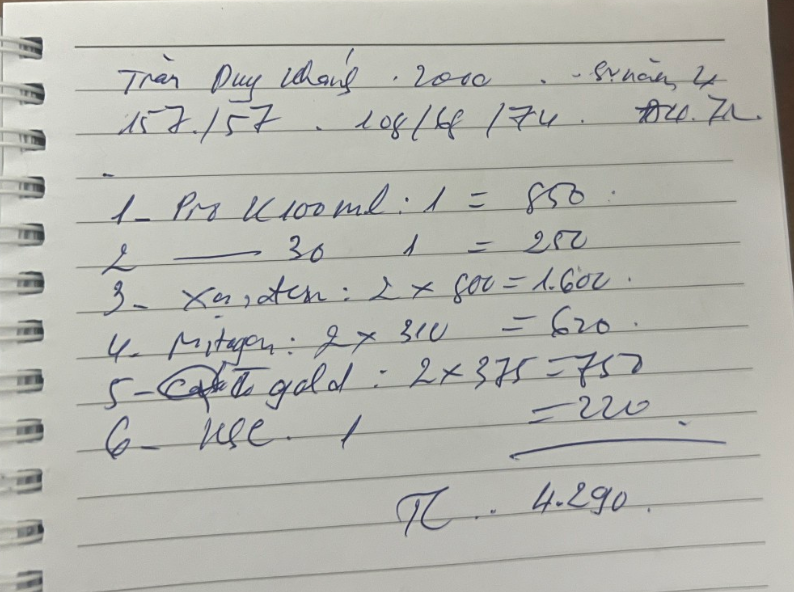 Trần Duy Khánh . 2000 .
157/57 . 108/68 /74 .
1- Pro K 100 ml : 1 = 850
2 —— 30 1 = 250
3- : 2 × 800 = 1.600 .
4- Mitagen : 2 × 310 = 620 .
5- gold : 2 × 375 = 750
6- KSC . 1 = 220 .
4.290 .